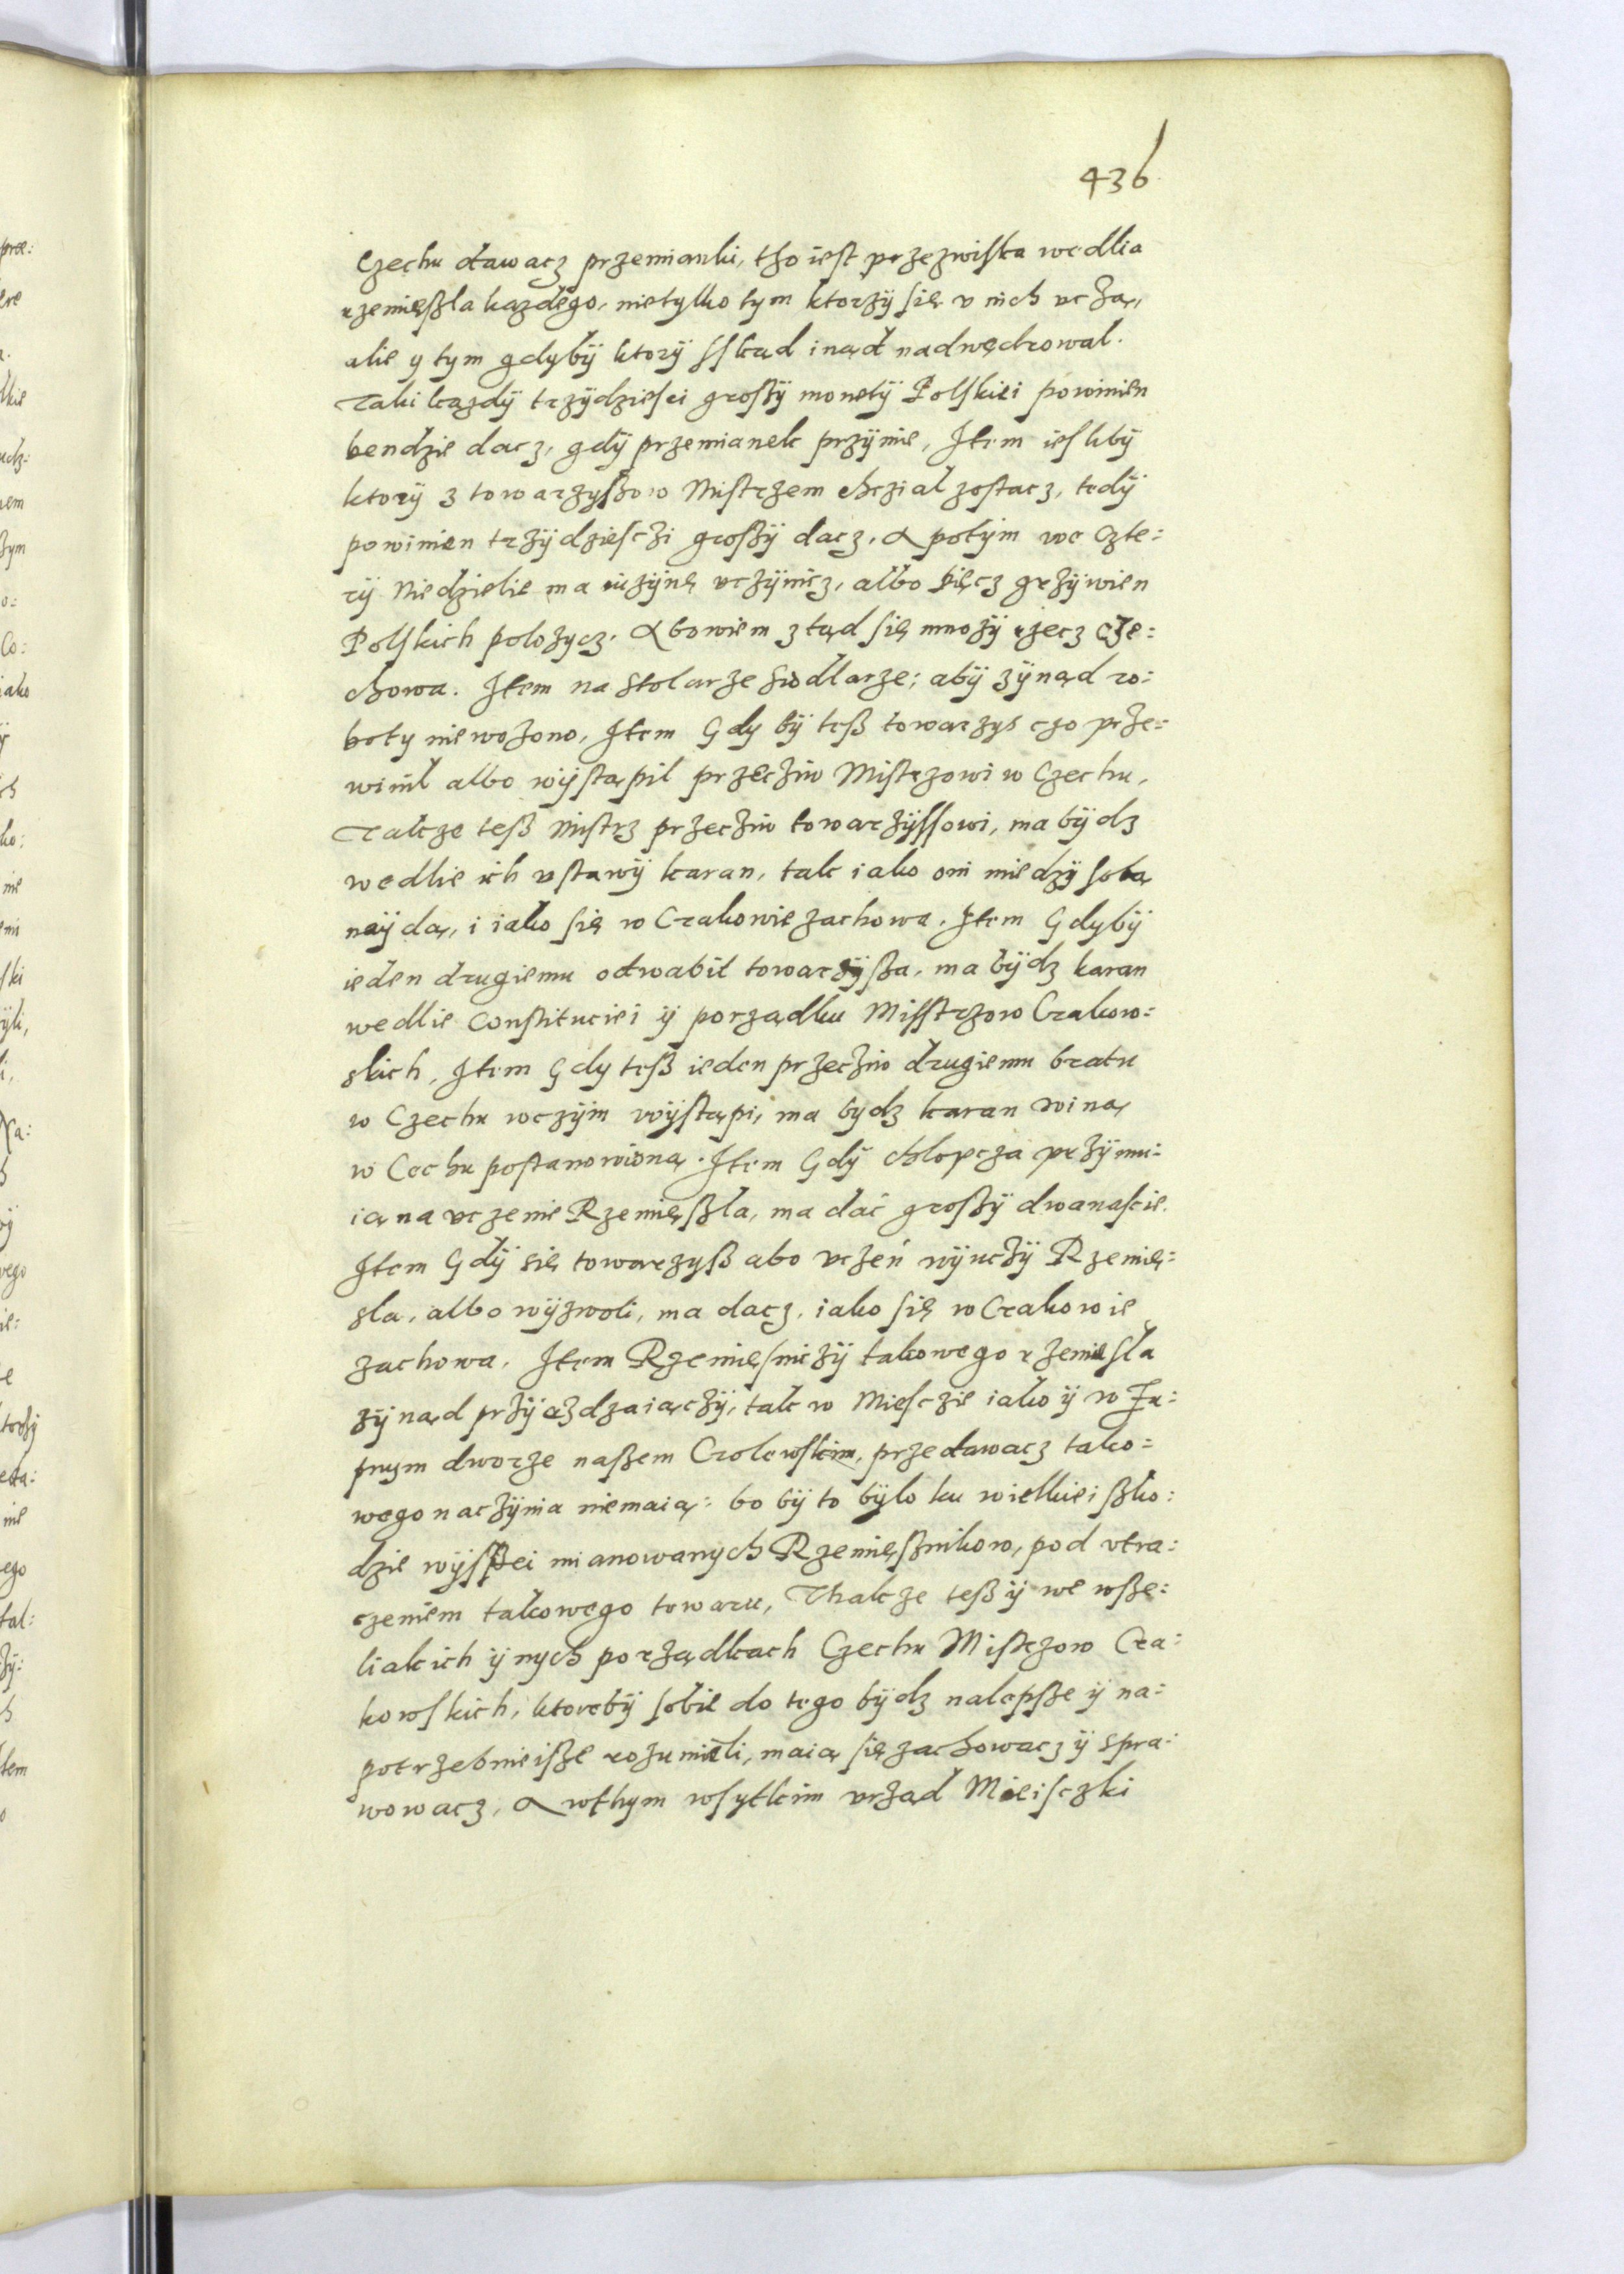 436
Czechu dawacz przemianki, tho iest przezwiska wedlia
rzemięßla kazdego, nietylko tym ktorzÿ się v nich vczą,
alie y tym gdybÿ ktorÿ sskąd inąd nadwędrowal.
Taki kazdÿ trzÿdziesci großÿ monetÿ Polskiei powinien
bendzie dacz, gdÿ przemianek przÿmie, Item iesłibÿ
ktorÿ z towarzyßow Mistrzem chczial zostacz, tedÿ
powinien trzÿdziesczi großÿ dacz, A potÿm we czte:
rÿ Niedzielie ma uczÿnę vczÿnicz, albo pięcz grzÿwien
Polskich polozycz. Abowiem ztąd się mnozÿ rzecz cze:
chowa. Item na stolarze siodlarze; abÿ zÿnąd ro:
boty niewozono, Item Gdy bÿ teß towarzys czo prze:
winil albo wÿstąpil przecziw Mistrzowi w Czechu,
Takze teß Mistrz przecziw towarzÿssowi, ma bÿdz
wedlie ich vstawÿ karan, tak iako oni miedzÿ sobą
naÿdą, i iako się w Crakowie zachowa. Item Gdybÿ
ieden drugiemu odwabil towarzÿßa, ma bÿdz karan
wedlie Constituciei ÿ porządku Misstrzow Crakow:
skich, Item Gdy teß ieden przecziw drugiemu bratu
w Czechu wczÿm wÿstąpi, ma bydz karan winą
w Cechu postanowioną. Item Gdÿ chlopcza przÿmu:
ią na vczenie Rzemięßla, ma dać großÿ dwanascie.
Item Gdÿ się towarzyß abo vczeń wÿuczÿ Rzemię:
sla, albo wÿzwoli, ma dacz, iako się w Crakowie
zachowa, Item Rzemięsniczÿ takowego rzemięsla
zÿnąd przÿezdzaiączÿ, tak w Miesczie iako ÿ w Zu:
pnym dworze naßem Crolewskim, przedawacz tako:
wego naczÿnia niemaią: bo bÿ to bÿlo ku wielkiei ßko:
dzie wÿsßei mianowanych Rzemięßnikow, pod vtra:
czeniem takowego towaru, Thakze teß ÿ we wße:
liakich ÿnych porządkach Czechu Mistrzow Cra:
kowskich, ktorebÿ sobie do tego bÿdz nalepße ÿ na:
potrzebnieiße rozumieli, maią się zachowacz ÿ spra:
wowacz, A wthym wsytkim vrząd Mieisczki